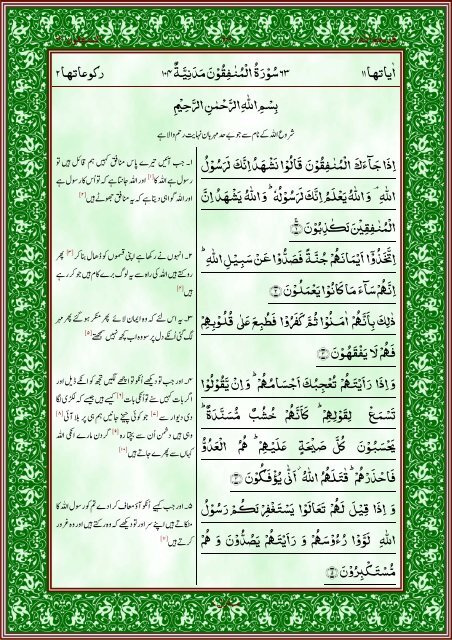 اٰیاتها ۱۱
۶۳ سُوْرَةُ الْمُنٰفِقُوْنَ مَدَنِيَّةٌ ۱۰۴
رکوعاتها ۲
بِسْمِ اللهِ الرَّحْمٰنِ الرَّحِيْمِ
شروع اللہ کے نام سے جو بے حد مہربان نہایت رحم والا ہے
اِذَا جَآءَكَ الْمُنٰفِقُوْنَ قَالُوْا نَشْهَدُ اِنَّكَ لَرَسُوْلُ
اللهِ ۘ وَاللهُ يَعْلَمُ اِنَّكَ لَرَسُوْلُهٗ ؕ وَاللهُ يَشْهَدُ اِنَّ
الْمُنٰفِقِيْنَ لَكٰذِبُوْنَ ﴿۱﴾
اِتَّخَذُوْٓا اَيْمَانَهُمْ جُنَّةً فَصَدُّوْا عَنْ سَبِيْلِ اللهِ ؕ
اِنَّهُمْ سَآءَ مَا كَانُوْا يَعْمَلُوْنَ ﴿۲﴾
ذٰلِكَ بِاَنَّهُمْ اٰمَنُوْا ثُمَّ كَفَرُوْا فَطُبِعَ عَلٰى قُلُوْبِهِمْ
فَهُمْ لَا يَفْقَهُوْنَ ﴿۳﴾
وَاِذَا رَاَيْتَهُمْ تُعْجِبُكَ اَجْسَامُهُمْ ؕ وَاِنْ يَّقُوْلُوْا
تَسْمَعْ لِقَوْلِهِمْ ؕ كَاَنَّهُمْ خُشُبٌ مُّسَنَّدَةٌ ؕ
يَحْسَبُوْنَ كُلَّ صَيْحَةٍ عَلَيْهِمْ ؕ هُمُ الْعَدُوُّ
فَاحْذَرْهُمْ ؕ قٰتَلَهُمُ اللهُ ۫ اَنّٰى يُؤْفَكُوْنَ ﴿۴﴾
وَ اِذَا قِيْلَ لَهُمْ تَعَالَوْا يَسْتَغْفِرْ لَكُمْ رَسُوْلُ
اللهِ لَوَّوْا رُءُوْسَهُمْ وَ رَاَيْتَهُمْ يَصُدُّوْنَ وَ هُمْ
مُّسْتَكْبِرُوْنَ ﴿۵﴾
۱۔ جب آئیں تیرے پاس منافق کہیں ہم قائل ہیں تو
رسول ہے اللہ کا [۱] اور اللہ جانتا ہے کہ تو اُس کا رسول ہے
اور اللہ گواہی دیتا ہے کہ یہ منافق جھوٹے ہیں [۲]
۲۔ انہوں نے رکھا ہے اپنی قسموں کو ڈھال بنا کر [۳] پھر
روکتے ہیں اللہ کی راہ سے یہ لوگ برے کام ہیں جو کر رہے
ہیں [۴]
۳۔ یہ اس لئے کہ وہ ایمان لائے پھر منکر ہو گئے پھر مہر
لگ گئی اُنکے دل پر سو وہ اب کچھ نہیں سمجھتے [۵]
۴۔ اور جب تو دیکھے اُنکو تو اچھے لگیں تجھ کو انکے ڈیل اور
اگر بات کہیں سنے تو اُنکی بات [۶] کیسے ہیں جیسے کہ لکڑی لگا
دی دیوار سے [۷] جو کوئی چیخے جانیں ہم ہی پر بلا آئی [۸]
وہی ہیں دشمن اُن سے بچتا رہ [۹] گردن مارے انکی اللہ
کہاں سے پھرے جاتے ہیں [۱۰]
۵۔ اور جب کہیے اُنکو آؤ معاف کرا دے تم کو رسول اللہ کا
مٹکاتے ہیں اپنے سر اور تو دیکھے کہ وہ رکتے ہیں اور وہ غرور
کرتے ہیں